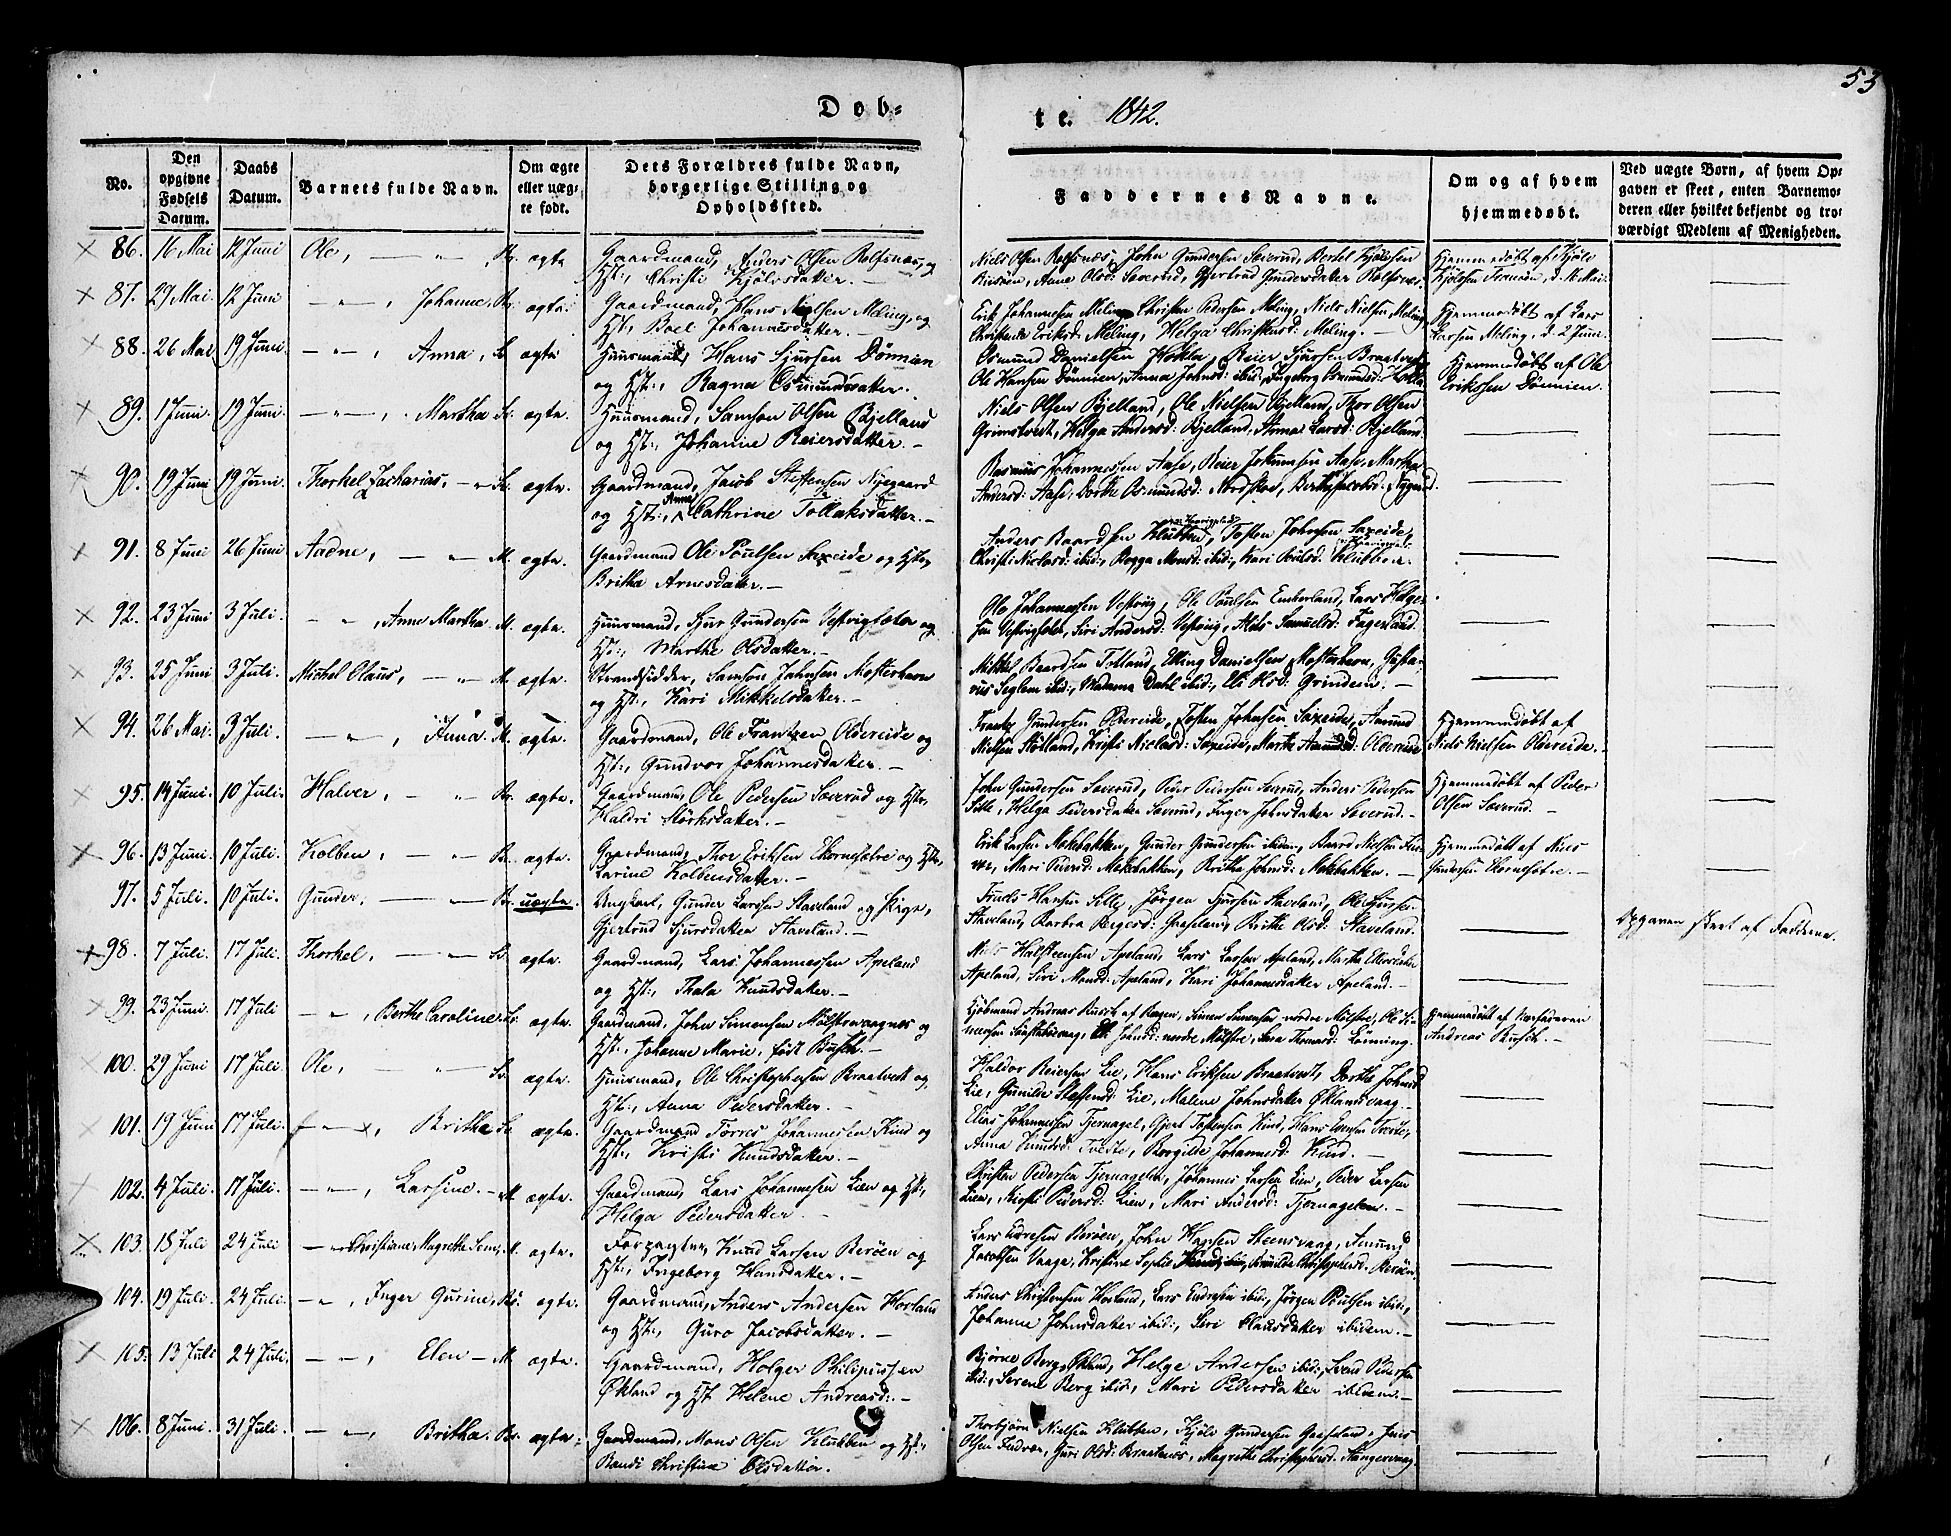 53
Dob=
te. 1842.
No.
Den opgivne Fødsels Datum.
Daabs Datum.
Barnets fulde Navn.
Om ægte eller uæg= te født.
Dets Forældres fulde Navn, borgerlige Stilling og Opholdssted.
Faddernes Navne.
Om og af hvem hjemmedøbt.
Ved uægte Børn, af hvem Op= gaven er skeet, enten Barnemo= deren eller hvilket bekjendt og tro= værdigt Medlem af Menigheden.
86. 16 Mai 12 Juni Ole, — " — Br. ægte Gaardmand, Anders Olsen Rolfsnæs, og
Hst:, Christi Kjølvsdatter. —
Niels Olsen Rolfsnæs, John Gundersen Sæverud, Bertel Kjølssen
Anne Olsd: Sæverud, Gjertrud Gundersdatter Rolfsnæs.
Hjemmedøbt af Kjøls
87. 27 Mai. 12 Juni — " — , Johanne, Br. ægte. Gaardmand, Hans Nielsen Meling, og
Hst:, Boel Johannesdatter. —
Erik Johannesen Meling, Christen Pedersen Meling, Niels Nielsen Meling,
Christense Eriksd: Meling, Helga Christensd: Meling. —
Hjemmedøbt af Lars
Larssen Meling, d. 2 Juni.
88. 26 Mai 19 Juni. — " — , Anna, Sv. ægte Huusmand, Hans Sjursen Dømmen
og Hst:, Ragna Osmundsdatter.
Osmund Danielsen Reier Sjursen
Ole Hansen Dømmen, Anna Johnsd: ibid:, Ingeborg Osmundsd:
Hjemmedøbt af Ole
Erikssen Dømmen.
89. 1 Juni. 19 Juni. — " — , Martha Sv. ægte. Huusmand, Samson Olsen Bjelland
og Hst:, Johanne Reiersdatter. —
Niels Olsen Bjelland, Ole Nielsen Bjelland, Thor Olsen
Grimstvedt, Helga Andersd: Bjelland, Anna Larsd: Bjelland.
90. 19 Juni 19 Juni. Thorkel Zacharias, — " Sv. ægte. Gaardmand, Jacob Steffensen Nygaard
og Hst:, Anna Cathrine Tollaksdatter. —
Rasmus Johannessen Aase, Reier Aase, Martha
Andersd: Aase, Dorthe Osmundsd: Nordskov,
91. 8 Juni 26 Juni. Aadne, — " — M. ægte. Gaardmand Ole Poulsen Saxeide og Hst:,
Britha Arnesdatter. —
Anders Baardsen Klubben, Tosten Johnsen Saxeide,
Christi Niclasd: ibid:, Bogga Monsd: ibid:, Kari Poulsd: Klubben.
92. 23 Juni 3 Juli. — " — , Anne Martha M. ægte. Huusmand, Sjur Gundersen og
Hst:, Marthe Olsdatter. —
Ole Johannessen Vestvig, Ole Poulsen Emberland, Lars Helge=
sen Siri Andersd: Vestvig, Samuelsd: Fagerland.
93. 25 Juni 3 Juli. Michel Olaus, — " — M. ægte. Strandsidder, Samson Johnsen Mosterhavn
og Hst:, Kari Mikkelsdatter. —
Mikkel Baardsen Totland, Elling Danielsen Mosterhavn, Gusta=
vus ibid:, Madame Dahl ibid:, Eli Olsd: Grindem. —
94. 26 Mai. 3 Juli. — " — , Anna M. ægte. Gaardmand, Ole Frantzen Oldereide og
Hst:, Gundvor Johannesdatter. —
Frantz Gundersen Oldereide, Tosten Johnsen Saxeide, Aamund
Nielsen Kristi Niclasd: Saxeide, Marthe Aamundsd: Oldereide
Hjemmedøbt af
Niels Nielsen Oldereide.
95. 14 Juni. 10 Juli. Halver, — " — Br. ægte. Gaardmand, Ole Pedersen Sæverud og Hst:,
Haldri datter. —
John Gundersen Sæverud, Peder Pedersen Sæverud, Anders Pedersen
Sille, Helga Pedersdatter Sæverud, Inger Johnsdatter Sæverud. —
Hjemmedøbt af Peder
Olsen Sæverud. —
96. 13 Juni. 10 Juli. Kolben, — " — Br. ægte. Gaardmand, Thor Eriksen Ekornesætre og Hst:,
Karine Kolbensdatter. —
Erik Larsen Mehebakken, Gunder Gundersen ibidem, Baard Nielsen
Mari Mehebakken, Britha Johnsd: Mehebakken. —
Hjemmedøbt af Niels
Gundersen Ekornesætre. —
97. 5 Juli. 10 Juli. Gunder, — " — Br. uægte. Ungkarl, Gunder Larssen Staveland og Pige,
Gjertrud Sjursdatter Staveland. —
Truels Hansen Sille, Jørgen Sjursen Staveland, Ole Sjursen
Staveland, Barbra Staveland.
Opgaven skeet af Fadderne.
98. 7 Juli 17 Juli. Thorkel, — " — Sv. ægte. Gaardmand, Lars Johannessen Apeland
og Hst:, Thala Knudsdatter. —
Niels Halsteensen Apeland, Lars Larssen Apeland, Martha
Apeland, Siri Monsd: Apeland, Kari Johannesdatter Apeland. —
99. 23 Juni. 17 Juli — " — , Berthe Caroline. Sv. ægte. Gaardmand, John Simonsen og
Hst:, Johanne Marie, født Busch. —
Kjøbmand Andreas Busch af Bergen, Simon Simonsen nordre Mølstre, Ole Si=
monsen Johnsd: nordre Mølstre, Sara Thomasd: Lønning.
Hjemmedøbt af
Andreas Busch. —
100. 29 Juni 17 Juli. Ole, — " — Sv. ægte. Huusmand, Ole Christophersen Braatvedt og
Hst:, Anna Pedersdatter. —
Haldor Reiersen Lie, Hans Eriksen Braatvedt, Dorthe Johnsd:
Lie, Gunilde Steffensd: Lie, Malene Johnsdatter Øklandsvaag. —
101. 19 Juni 17 Juli. — " — , Britha Sv. ægte. Gaardmand Torres Johannessen Kind og
Hst:, Kristi Knudsdatter. —
Elias Johannessen Tjernagel, Gjert Tostensen Kind, Hans Tveite,
Anna Knudsd: Tveite, Borgilde Johannesd: Kind. —
102. 4 Juli. 17 Juli. — " — , Larsine. — M. ægte. Gaardmand, Lars Johannesen Lien og Hst:,
Helga Pedersdatter. —
Christen Pedersen Tjernagelen, Johannes Larsen Lien, Peder Larsen
Lien, Kirsti Pedersd: Lien, Mari Andersd: Tjernagelen. —
103. 18 Juli 24 Juli — " — Christiane Magrethe M. ægte. Forpagter, Knud Larsen Berøen og
Hst:, Ingeborg Hansdatter. —
Lars Berøen, John Hansen Steensvaag, Amund
Jacobsen Vaage, Kristine Sophie Berøen.
104. 19 Juli. 24 Juli. — " — , Inger Gurine, Br. ægte. Gaardmand, Anders Andersen Hovland
og Hst:, Guro Jacobsdatter. —
Anders Christensen Hovland, Lars Endresen ibid:, Jørgen Poulsen ibid:,
Johanne Johnsdatter ibid:, Siri Clausdatter ibidem. —
105. 13 Juli 24 Juli. — " — , Elen — M. ægte. Gaardmand, Holger Philipussen
Økland og Hst Helene Andreasd: —
Bjørne Berge Økland, Helge Andersen ibid:, Svend Pedersen
ibid:, Serene Berg ibid:, Mari Pedersdatter ibidem. —
106. 8 Juni. 31 Juli. — " — , Britha. Br. ægte. Gaardmand, Mons Olsen Klubben og Hst:,
Randi Christine Olsdatter.
Thorbjørn Nielsen Klubben, Kjøls Gundersen Jens
Olsen Guri Olsd: Magrethe Christophersd: Stangervaag.